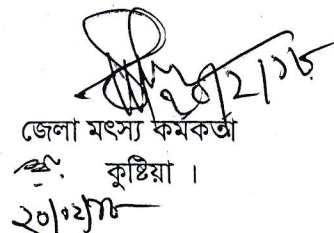 ২০/২/১৮
জেলা মৎস্য কর্মকর্তা
কুষ্টিয়া ।
২০/০২/১৮